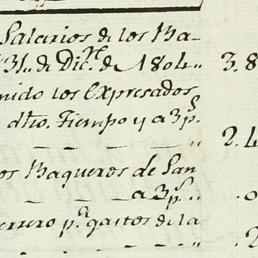 Salarios de los Ba-
31.. de Dic.re de 1804.. 3.8
nido los Expresados
dho. Tiempo y a 3 p.s
2.4
os Baqueros de San
a 3 p.s ..
errero p.r gastos de la